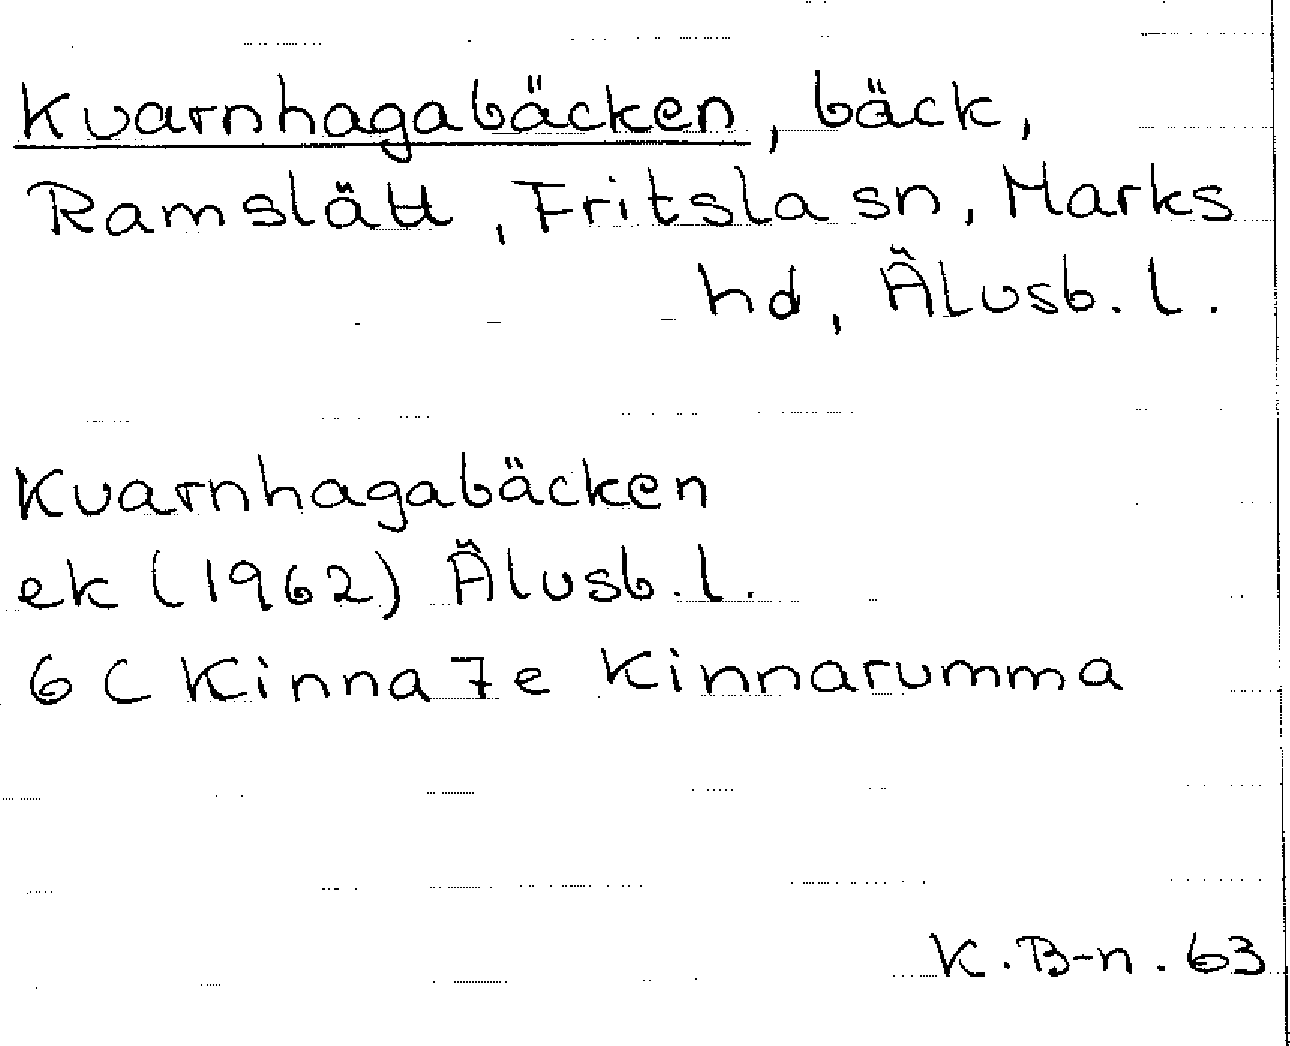 Kvarnhagabäcken, bäck,
Ramslätt, Fritsla sn, Marks
hd, Älvsb. l.
Kvarnhagabäcken
ek (1962) Älvsb. l.
6 C Kinna 7e Kinnarumma
K. B-n. 63